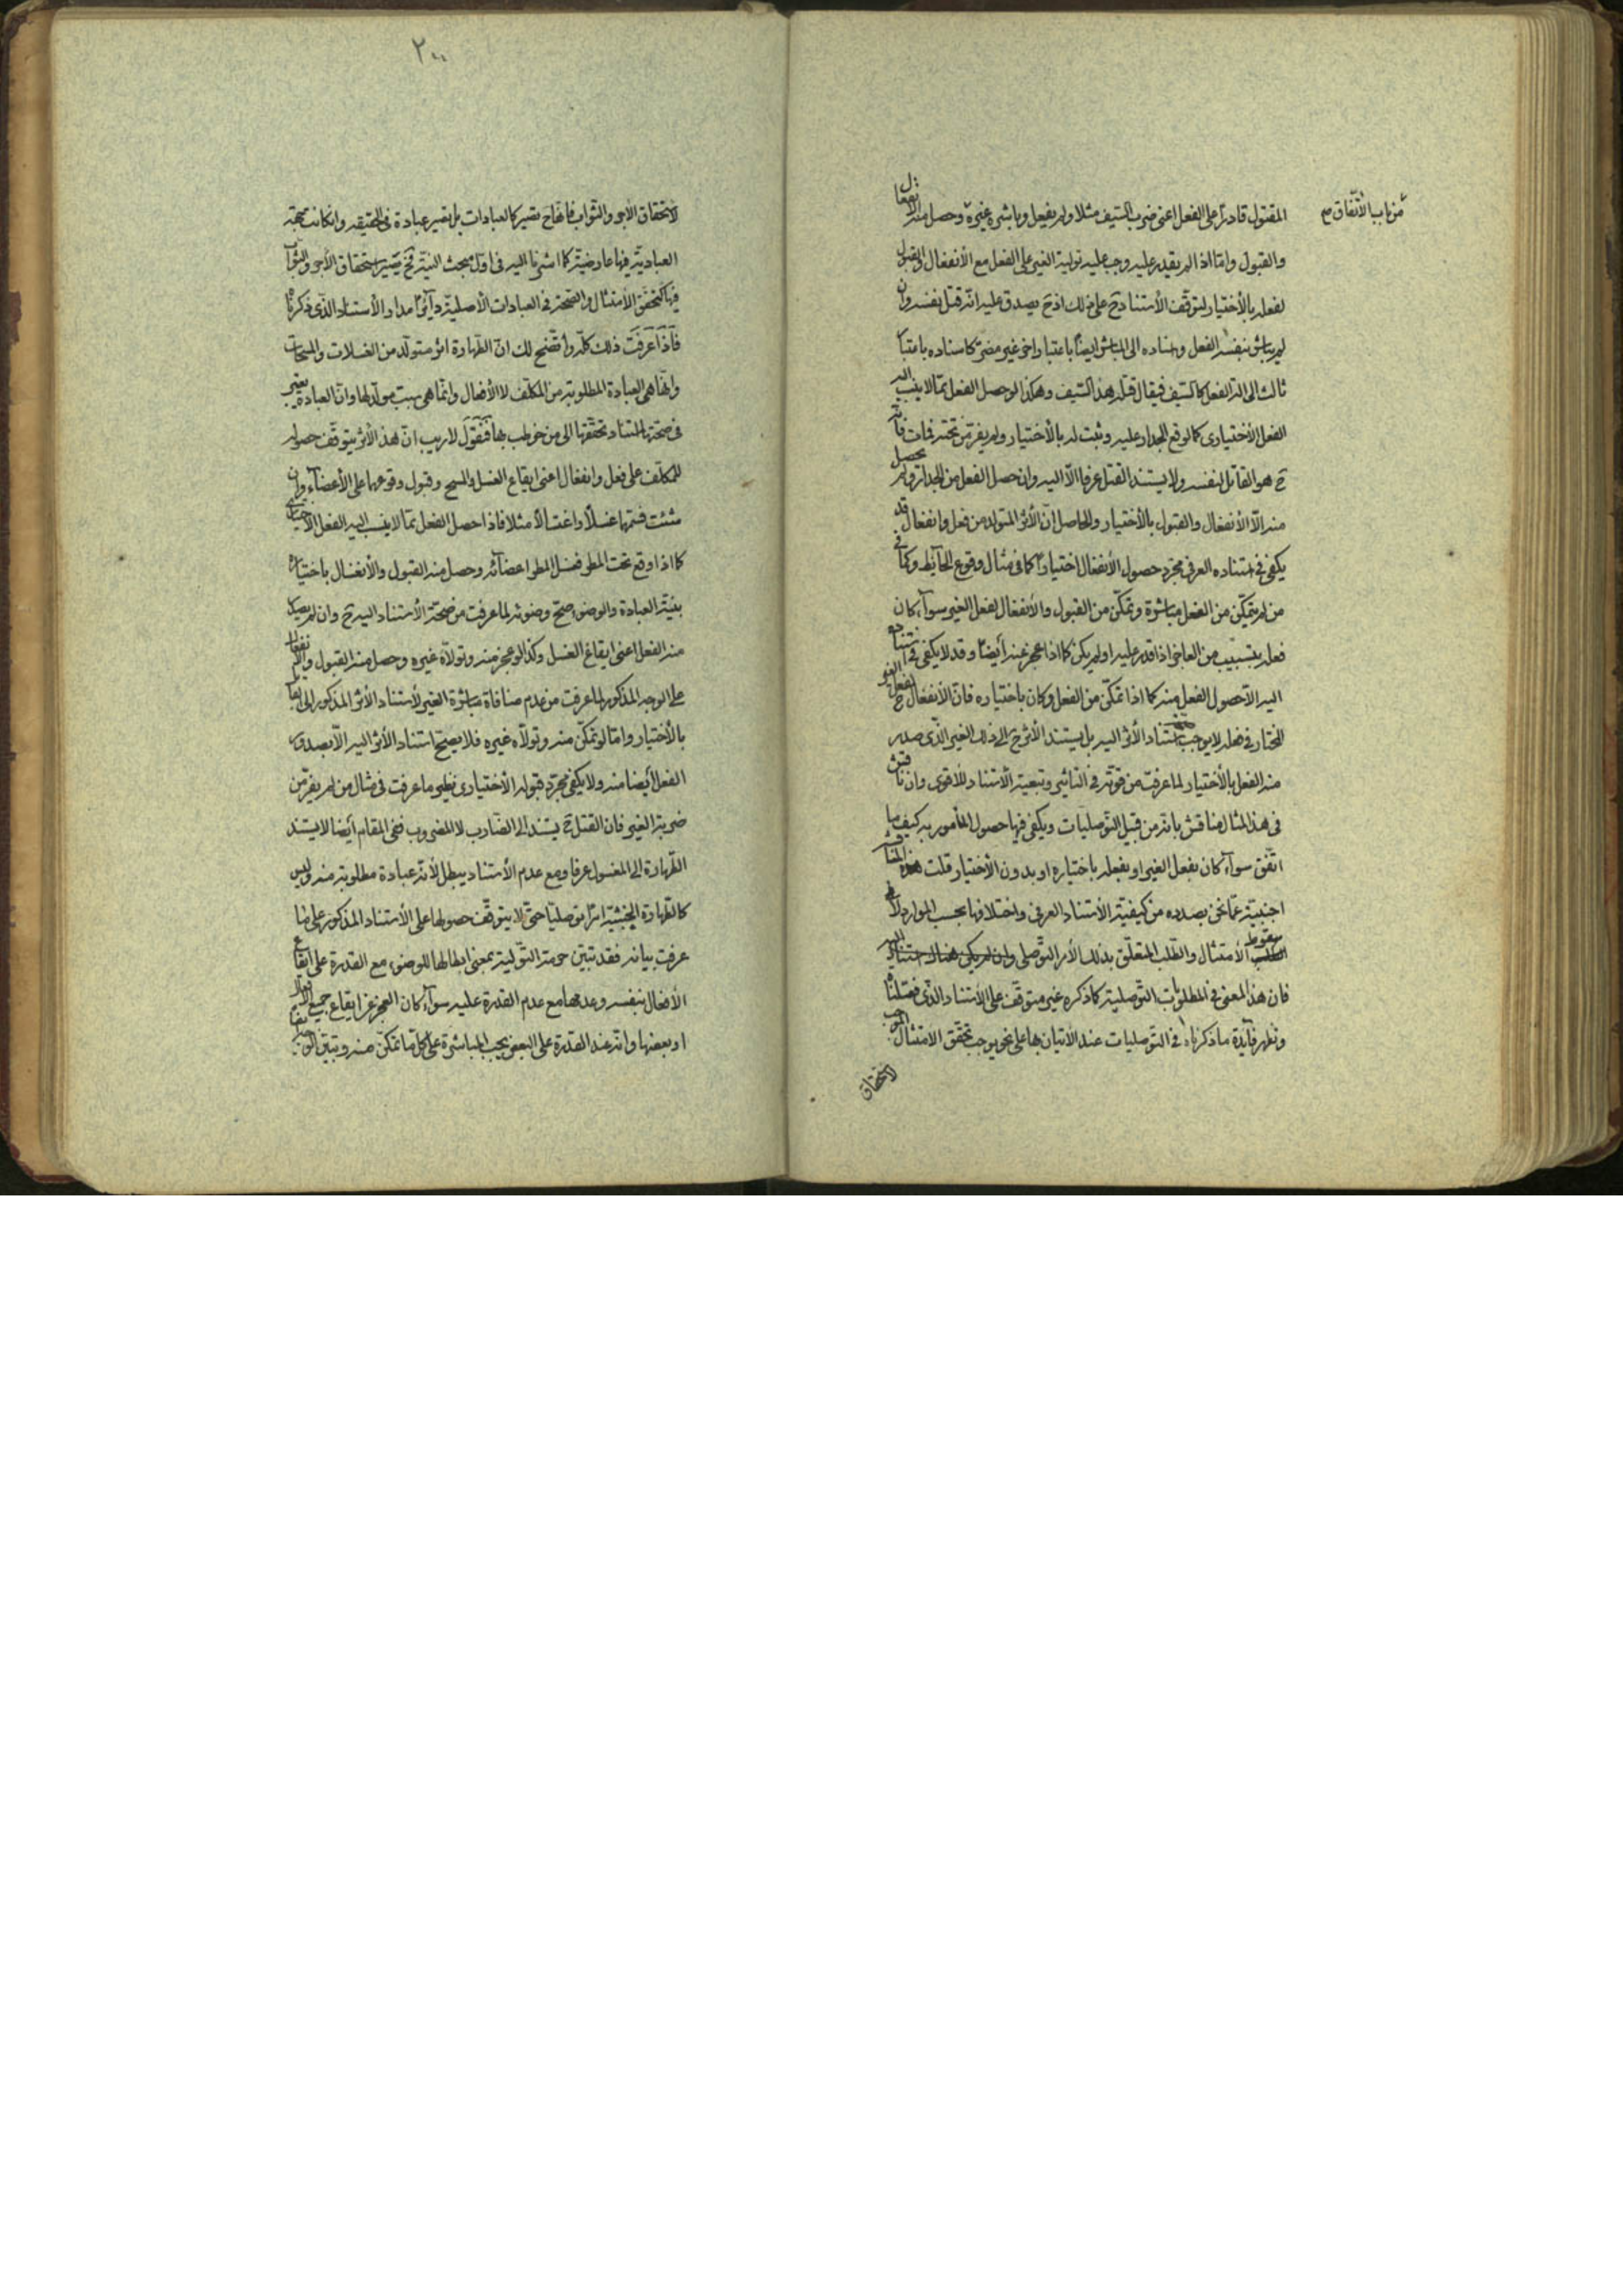 من باب الأتفاق صح
المقتول قادرا على الفعل اعنى ضرب السّيف مثلا ولم يفعل وباشره غيره وحصل منه الأنفعال
والقبول وامّا اذا لم يقدر عليه وجب عليه تولية الغير على الفعل مع الأنفعال والقبول
لفعله بالأختيار لتوقّف الأستنادح على ذلك اذح يصدق عليه انّه قتل نفسه وان
لم يباشر بنفسه الفعل واسناده الى المباشر ايضا باعتبار اخر غير مضرّ كاسناده باعتبار
ثالث الى الة الفعل كالسّيف فيقال قتله هذا السّيف وهكذا لو حصل الفعل ممّا لا ينسب اليه
الفعل الأختيارى كما لو وقع الجدار عليه وثبت له بالأختيار ولم يفرّ من تحته فمات فانّه
ح هو القاتل لنفسه ولا يستند القتل عرفا الّا اليه وان حصل الفعل من الجدار ولم يحصل
منه الّا الأنفعال والقبول بالأختيار والحاصل انّ الأثر المتولد من فعل وانفعال قد
يكفى فى استناده العرفى مجرّد حصول الأنفعال اختيارا كما فى مثال وقوع الحايط وكما فى
من لم يتمكّن من الفعل مباشرة وتمكّن من القبول والأنفعال لفعل الغير سواء كان
فعله بتسبيب من العاجز اذا قدر عليه او لم يكن كما اذا عجز عنه أيضا وقد لا يكفى فى استناده
اليه الّا حصول الفعل منه كما اذا تمكّن من الفعل وكان باختياره فانّ الأنفعال ح لفعل الغير
المختار فى فعله لا يوجب استناد الأثر اليه بل يستند الأثر ح الى ذلك الغير الّذى صدر
منه الفعل بالأختيار لما عرفت من قوّته فى التأثير وتبعية الأستناد للأقوى وان ناقش
فى هذا المثال مناقش بانّه من قبيل التّوصليات ويكفى فيها حصول المأمور به كيف ما
اتّفق سواء كان بفعل الغير او بفعله باختياره او بدون الأختيار قلت هذه المناقشة
اجنبية عمّا نحن بصدده من كيفيّة الأستناد العرفى واختلافها بحسب الموارد لا فى
سقوط الأمتثال والطّلب المتعلّق بذلك الأمر التّوصلى وان لم يكن هناك استناد اليه
فان هذا المعنى فى المطلوبات التّوصلية كما ذكره غير متوقّف على الأستناد الّذى فصّلناه
وتظهر فائدة ما ذكرناه فى التّوصليات عند الأتيان بها على نحو يوجب تحقّق الأمتثال الموجب
لاستحقاق
٢٠٠
لاستحقاق الأجر والثّواب فانّهاح تصير كالعبادات بل تصير عبادة فى الحقيقه وان كانت جهة
العباديّة فيها عارضيّة كما اشرنا اليه فى اوّل مبحث النيّة فح يصير استحقاق الأجر والثّواب
فيها كتحقّق الأمتثال والصّحة فى العبادات الأصليّة دائرا مدار الأستناد الّذى ذكرناه
فاذا عرفت ذلك كلّه واتّضح لك انّ الطّهارة اثر متولّد من الغسلات والمسحات
وانّها هى العبادة المطلوبة من المكلّف لا الأفعال وانّما هى سبب مولّد لها وانّ العبادة يعتبر
فى صحّتها استناد تحقّقها الى من خوطب بها فنقول لا ريب انّ هذا الأثر يتوقّف حصوله
للمكلّف على فعل وانفعال اعنى ايقاع الغسل والمسح وقبول وقوعها على الأعضاء وان
شئت فسمّها غسلا واغتسالا مثلا فاذا حصل الفعل ممّا لا ينسب اليه الفعل الأختيارى
كما اذا وقع تحت المطر فغسل المطر اعضائه وحصل منه القبول والأنغسال باختياره
بنيّة العبادة والوضوء صحّ وضوئه لما عرفت من صحّة الأستناد اليه ح وان لم يصدر
منه الفعل اعنى ايقاع الغسل وكذا لو عجز منه وتولّاه غيره وحصل منه القبول والأنفعال
على الوجه المذكور لما عرفت من عدم منافاة مباشرة الغير لأستناد الأثر المذكور الى القابل
بالأختيار وامّا لو تمكّن منه وتولّاه غيره فلا يصحّ استناد الأثر اليه الّا بصدور
الفعل أيضا منه ولا يكفى مجرّد قبوله الأختيارى نظير ما عرفت فى مثال من لم يفرّ من
ضربة الغير فان القتل ح يستند الى الضّارب لا المضروب ففى المقام أيضا لا يستند
الطّهارة الى المغسول عرفا ومع عدم الأستناد يبطل لأنّه عبادة مطلوبة منه وليس
كالطّهارة الخبثيّة امرا توصليّا حتّى لا يتوقّف حصولها على الأستناد المذكور على ما
عرفت بيانه فقد تبيّن حرمة التّولية بمعنى ابطالها للوضوء مع القدرة على ايقاع
الأفعال بنفسه وعدمها مع عدم القدرة عليه سواء كان العجز عن ايقاع جميع الأفعال
او بعضها وانّه عند القدرة على البعض يجب المباشرة على كلّ ما تمكّن منه وتبيّن